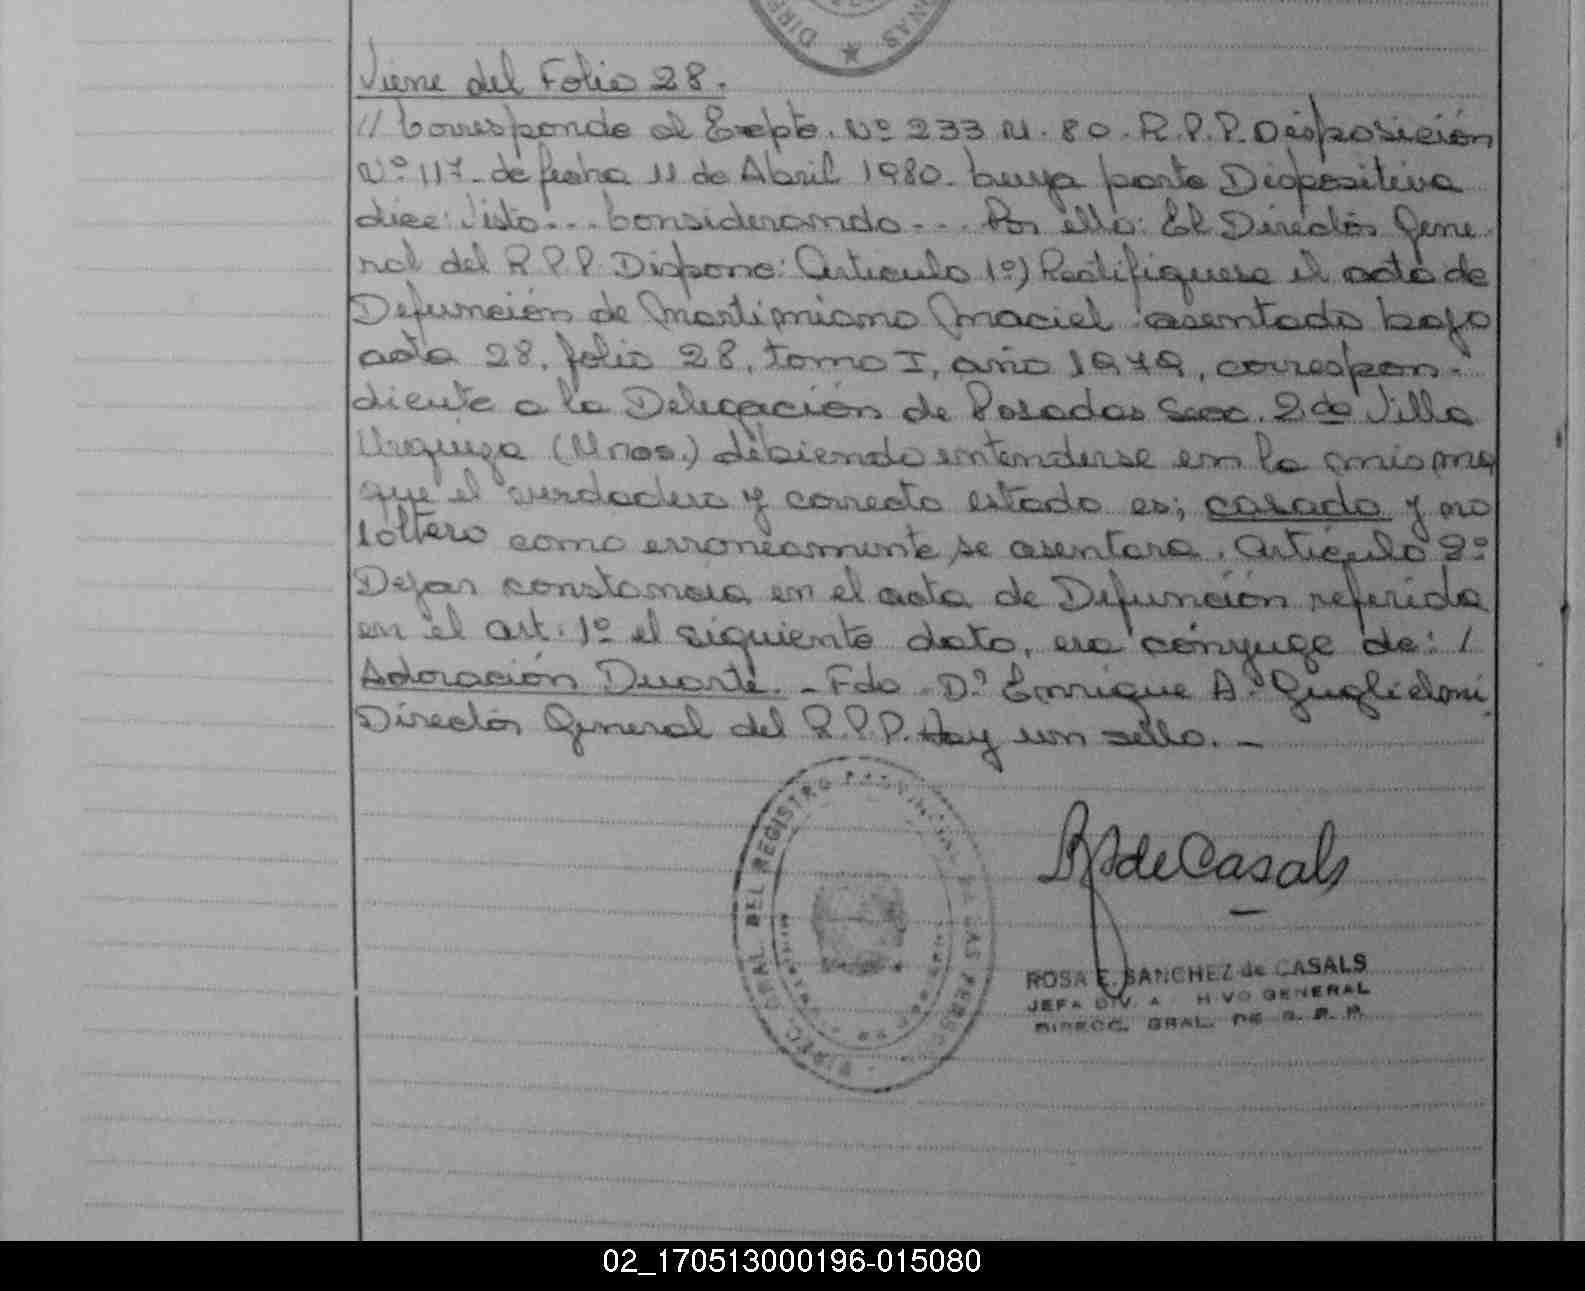 Viene del Folio 28.
// Corresponde al Expte. Nº 233 M. 80. R.P.P. Disposición
Nº 117. de fecha 11 de Abril 1980. Cuya parte Dispositiva
dice: Visto... Considerando... Por ello: El Director Gene
ral del R.P.P. Dispone: Articulo 1º) Rectifiquese el acta de
Defunción de Martimiano Maciel asentado bajo
acta 28, folio 28, tomo I, año 1979, correspon-
diente a la Delegación de Posadas Secc. 2da Villa
Urquiza (Mnes.) debiendo entenderse en la misma
que el verdadero y correcto estado es; casado y no
soltero como erroneamente, se asentara. Articulo 2º
Dejar constancia en el acta de Defunción referida
en el art. 1º el siguiente dato, era cónyuge de: /
Adoración Duarte. - Fdo. Dº Enrique A. 
Director General del R.P.P. Hay un sello. -
DIREC. GRAL. DEL REGISTRO PROVINCIAL DE LAS PERSONAS
RS de Casals
ROSA E. SANCHEZ de CASALS
JEFA DIV. A HIVO GENERAL
DIRECC. GRAL. DE R. P. P.
02_170513000196-015080